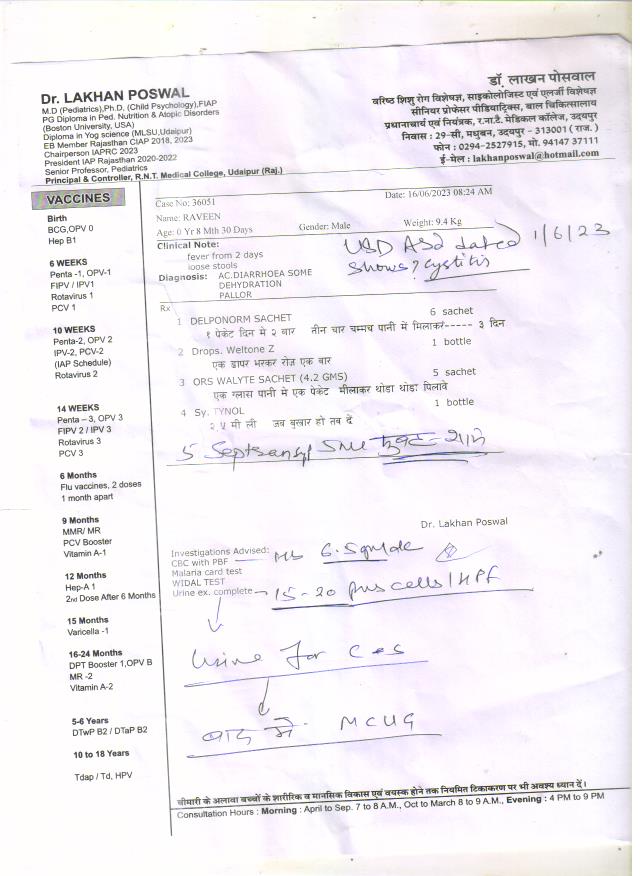 Dr. LAKHAN POSWAL
M.D (Pediatrics),Ph.D, (Child Psychology),FIAP
PG Diploma in Ped. Nutrition & Atopic Disorders
(Boston University, USA)
Diploma in Yog science (MLSU,Udaipur)
EB Member Rajasthan CIAP 2018, 2023
Chairperson IAPRC 2023
President IAP Rajasthan 2020-2022
Senior Professor, Pediatrics
Principal & Controller, R.N.T. Medical College, Udaipur (Raj.)
डॉ. लाखन पोसवाल
वरिष्ठ शिशु रोग विशेषज्ञ, साइकोलोजिस्ट एवं एलर्जी विशेषज्ञ
सीनियर प्रोफेसर पीडियाट्रिक्स, बाल चिकित्सालय
प्रधानाचार्य एवं नियंत्रक, र.ना.टै. मेडिकल कॉलेज, उदयपुर
निवास : 29-सी, मधुबन, उदयपुर - 313001 ( राज. )
फोन : 0294-2527915, मो. 94147 37111
ई-मेल : lakhanposwal@hotmail.com
VACCINES
Birth
BCG,OPV 0
Hep B1
6 WEEKS
Penta -1, OPV-1
FIPV / IPV1
Rotavirus 1
PCV 1
10 WEEKS
Penta-2, OPV 2
IPV-2, PCV-2
(IAP Schedule)
Rotavirus 2
14 WEEKS
Penta – 3, OPV 3
FIPV 2 / IPV 3
Rotavirus 3
PCV 3
6 Months
Flu vaccines, 2 doses
1 month apart
9 Months
MMR/ MR
PCV Booster
Vitamin A-1
12 Months
Hep-A 1
2nd Dose After 6 Months
15 Months
Varicella -1
16-24 Months
DPT Booster 1,OPV B
MR -2
Vitamin A-2
5-6 Years
DTwP B2 / DTaP B2
10 to 18 Years
Tdap / Td, HPV
Case No: 36051
Date: 16/06/2023 08:24 AM
Name: RAVEEN
Age: 0 Yr 8 Mth 30 Days Gender: Male Weight: 9.4 Kg
Clinical Note:
fever from 2 days
loose stools
Diagnosis: AC.DIARRHOEA SOME
DEHYDRATION
PALLOR
USD ASD dated 1/6/23
shows ? cystitis
Rx
1 DELPONORM SACHET 6 sachet
१ पेकेट दिन मे २ बार तीन चार चम्मच पानी में मिलाकर----- ३ दिन
2 Drops. Weltone Z 1 bottle
एक ड्रापर भरकर रोज़ एक बार
3 ORS WALYTE SACHET (4.2 GMS) 5 sachet
एक ग्लास पानी मे एक पेकेट मीलाकर थोडा थोडा पिलावे
4 Sy. TYNOL 1 bottle
२.५ मी ली जब बुखार हो तब दें
5 Septran Syp 5ml सुबह - शाम
Dr. Lakhan Poswal
Investigations Advised:
CBC with PBF Hb 6.5 gm/dl
Malaria card test
WIDAL TEST
Urine ex. complete 15-20 pus cells/HPF
Urine for C&S
बाद में MCUG
बीमारी के अलावा बच्चों के शारीरिक व मानसिक विकास एवं वयस्क होने तक नियमित टिकाकरण पर भी अवश्य ध्यान दें।
Consultation Hours : Morning : April to Sep. 7 to 8 A.M., Oct to March 8 to 9 A.M., Evening : 4 PM to 9 PM